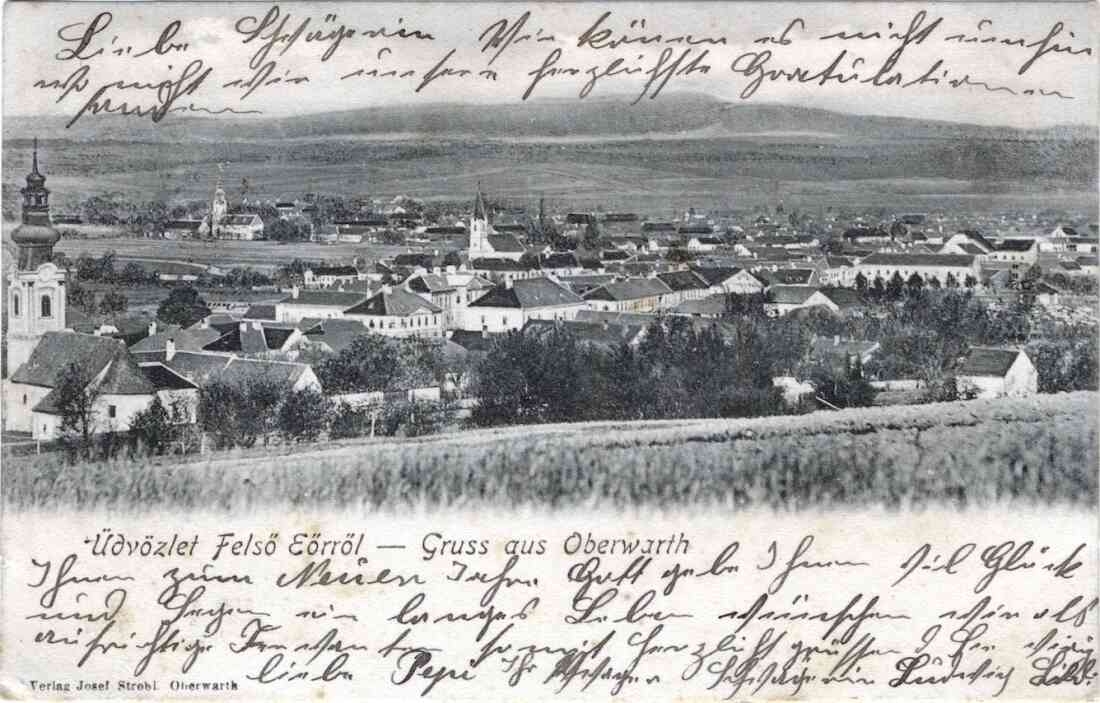 Liebe Schwägerin Wir könen es nicht umhin
wo nicht wir unsere herzlichste Gratulationen
senden
Üdvözlet Felső Eőrről — Gruss aus Oberwarth
Ihnen zum Neuen Jahre Gott gebe Ihnen vil Glück
und Segen ein langes Leben wünschen wir als
aufrichtige somit herzlich grüssen Sie
liebe Pepi Ihr Schwager Schwägerin Ludwig
Verlag Josef Strobl Oberwarth